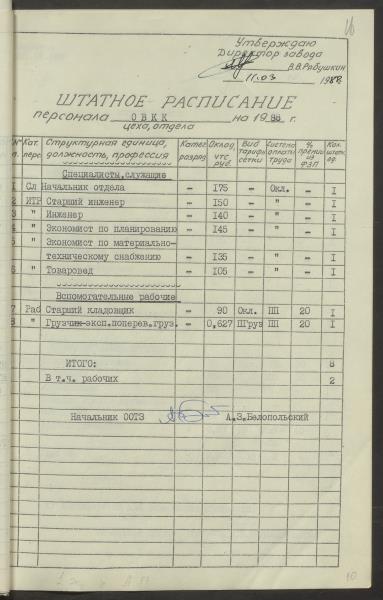 16
Утверждаю
Директор завода
В.В.Рябушкин
11.03 1988
ШТАТНОЕ РАСПИСАНИЕ
персонала ОВКК на 1988 г.
цеха, отдела
№ п. Кат. перс. Структурная единица, должность, профессия Катег. разряд Оклад, ЧТС руб. Вид тарифн. сетки Система оплаты труда % премии из ФЗП Кол. штатн. ед.
Специалисты, служащие
1 Сл Начальник отдела - 175 - Окл. - 1
2 ИТР Старший инженер - 150 - " - 1
3 " Инженер - 140 - " - 1
4 " Экономист по планированию - 145 - " - 1
5 " Экономист по материально-
техническому снабжению - 135 - " - 1
6 " Товаровед - 105 - " - 1
Вспомогательные рабочие
7 Раб Старший кладовщик - 90 Окл. ПП 20 1
8 " Грузчик-эксп.поперев.груз. - 0,627 ПГруз ПП 20 1
ИТОГО: 8
В т.ч. рабочих 2
Начальник ООТЗ А.З.Белопольский
10